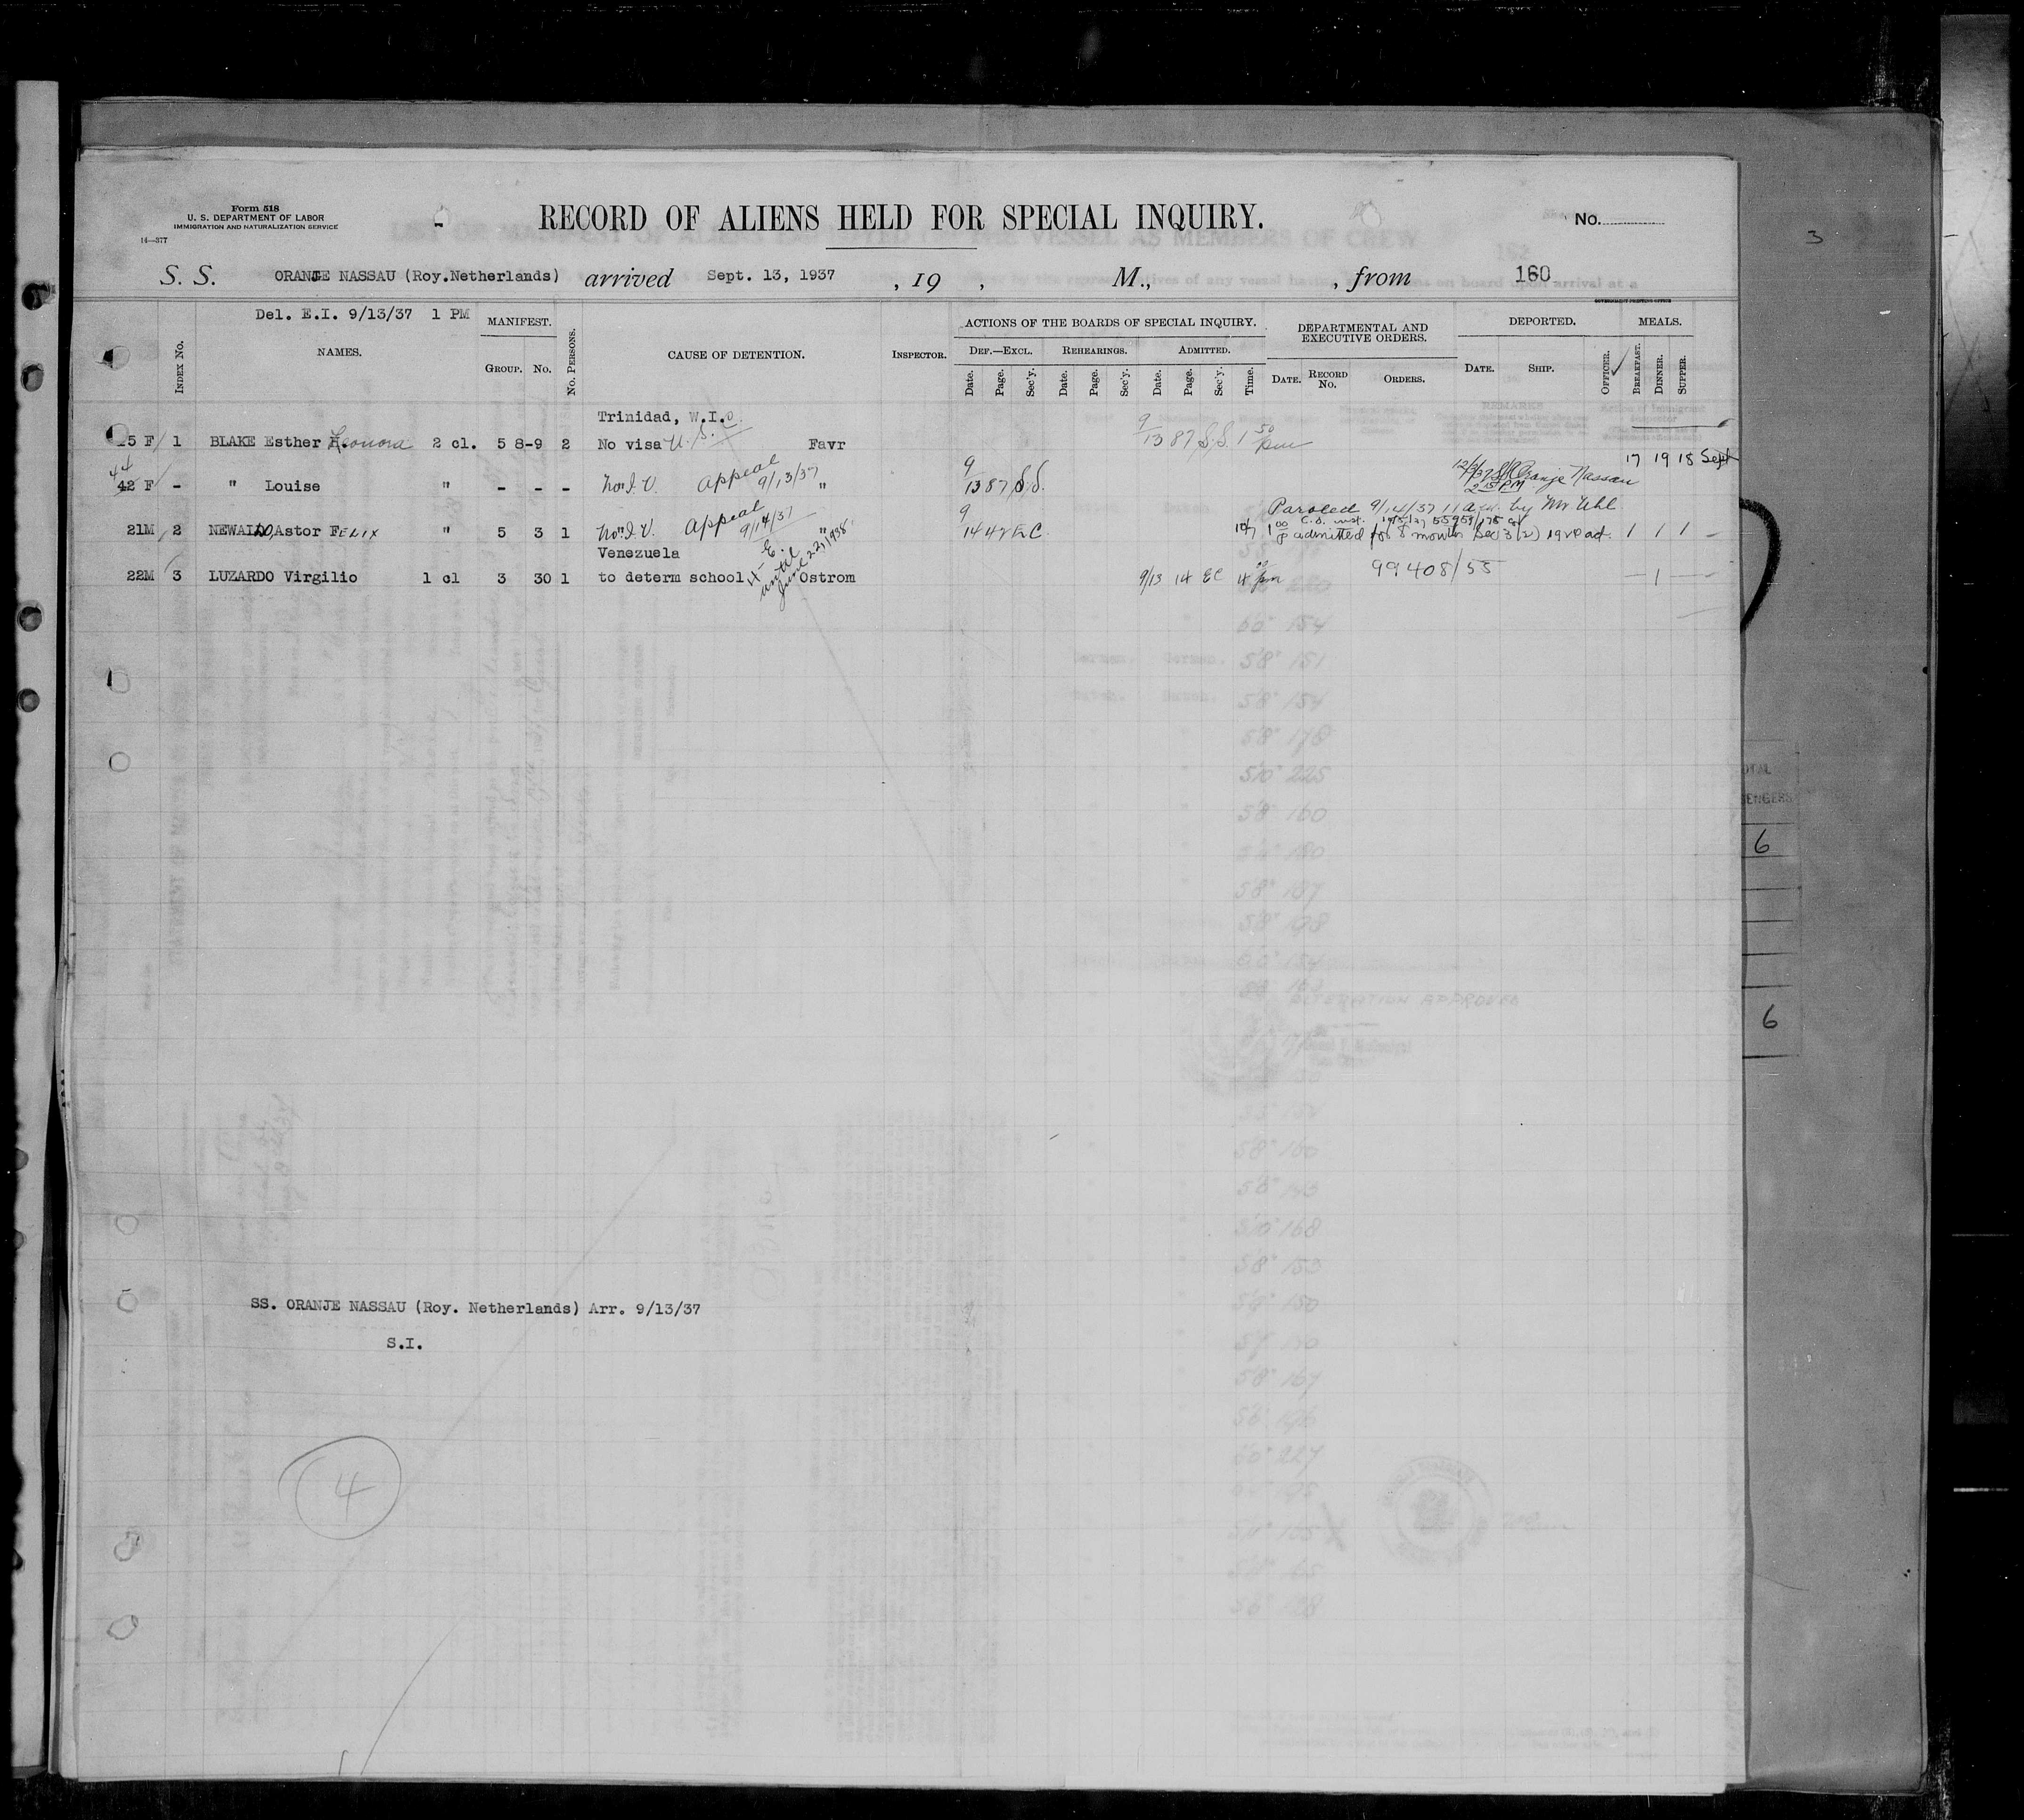 Form 518
U. S. DEPARTMENT OF LABOR
IMMIGRATION AND NATURALIZATION SERVICE
14—377
RECORD OF ALIENS HELD FOR SPECIAL INQUIRY.
No.
S. S. ORANJE NASSAU (Roy.Netherlands) arrived Sept. 13, 1937 , 19 , M., , from 160
Del. E.I. 9/13/37 1 PM
GOVERNMENT PRINTING OFFICE
INDEX No. NAMES. MANIFEST. GROUP. No. No. PERSONS. CAUSE OF DETENTION. INSPECTOR.
ACTIONS OF THE BOARDS OF SPECIAL INQUIRY. DEPARTMENTAL AND EXECUTIVE ORDERS. DEPORTED. MEALS.
DEF.—EXCL. REHEARINGS. ADMITTED.
Date. Page. Sec'y. Date. Page. Sec'y. Date. Page. Sec'y. Time. DATE. RECORD No. ORDERS. DATE. SHIP. OFFICER. BREAKFAST. DINNER. SUPPER.
Trinidad, W.I.
15 F 1 BLAKE Esther Leonora 2 cl. 5 8-9 2 No visa U. S. C. Favr 9/13 87 S.S. 1 50 pm
17 19 18 Sept
44
42 F - " Louise " - - - No I.V. Appeal 9/13/37 " 9/13 87 S.S. Oranje Nassau
2 15 PM
Paroled 9/14/37 11 a.m. by Mr Uhl
21M 2 NEWALDO, Astor FELIX " 5 3 1 No I.V. Appeal 9/14/37 " 9/14 42 E C 1 00 p admitted for 8 months Sec 3(2) 1 1 1 -
Venezuela
22M 3 LUZARDO Virgilio 1 cl 3 30 1 to determ school 4-E. until June 22, 1938 Ostrom 9/13 14 EC 4 00 pm 99408/55 - 1 - -
SS. ORANJE NASSAU (Roy. Netherlands) Arr. 9/13/37
S.I.
4
3
OTAL
SENGERS
6
6